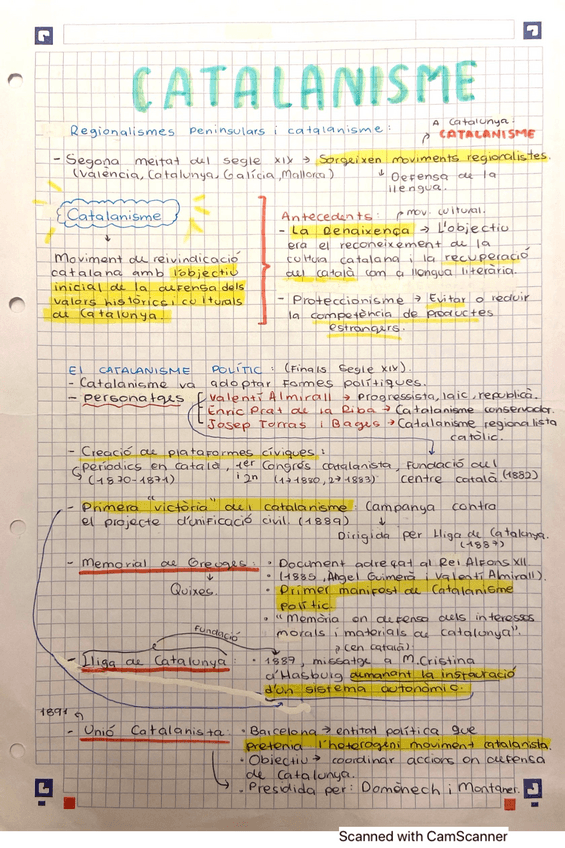 CATALANISME
Regionalismes Peninsulars i catalanisme:
A Catalunya.
CATALANISME
- Segona meitat del segle XIX → Sorgeixen moviments regionalistes.
(València, Catalunya, Galícia, Mallorca)
↓ Defensa de la
llengua.
Catalanisme
↓
Moviment de reivindicació
catalana amb l'objectiu
inicial de la defensa dels
valors històrics i culturals
de Catalunya.
Antecedents:
mov. cultural.
- La Renaixença → L'objectiu
era el reconeixement de la
cultura catalana i la recuperació
del català com a llengua literària.
- Proteccionisme → Evitar o reduir
la competència de productes
estrangers.
El CATALANISME POLÍTIC: (Finals segle XIX).
- Catalanisme va adoptar formes polítiques.
- personatges
Valentí Almirall → Progressista, laic, republicà.
Enric Prat de la Riba → Catalanisme conservador.
Josep Torras i Bages → Catalanisme regionalista
catòlic.
- Creació de plataformes cíviques:
Periòdics en català, 1er Congrés catalanista, Fundació del
(1870-1871) i 2n (1→1880, 2→1883) centre català. (1882)
- Primera "victòria" del catalanisme: Campanya contra
el projecte d'unificació civil. (1889) ↓
Dirigida per Lliga de Catalunya.
(1887)
- Memorial de Greuges:
↓
Quixes.
• Document adreçat al Rei Alfons XII.
• (1885, Àngel Guimerà i Valentí Almirall).
• Primer manifest de Catalanisme
polític.
• "Memòria en defensa dels interessos
morals i materials de Catalunya".
(en català)
Fundació
- Lliga de Catalunya:
• 1887, missatge a M.Cristina
d'Hasburg demanant la instauració
d'un sistema autonòmic.
1891
- Unió Catalanista:
• Barcelona → entitat política que
pretenia l'heterogeni moviment catalanista.
• Objectiu → coordinar accions en defensa
de Catalunya.
• Presidida per: Domènech i Montaner.
Scanned with CamScanner